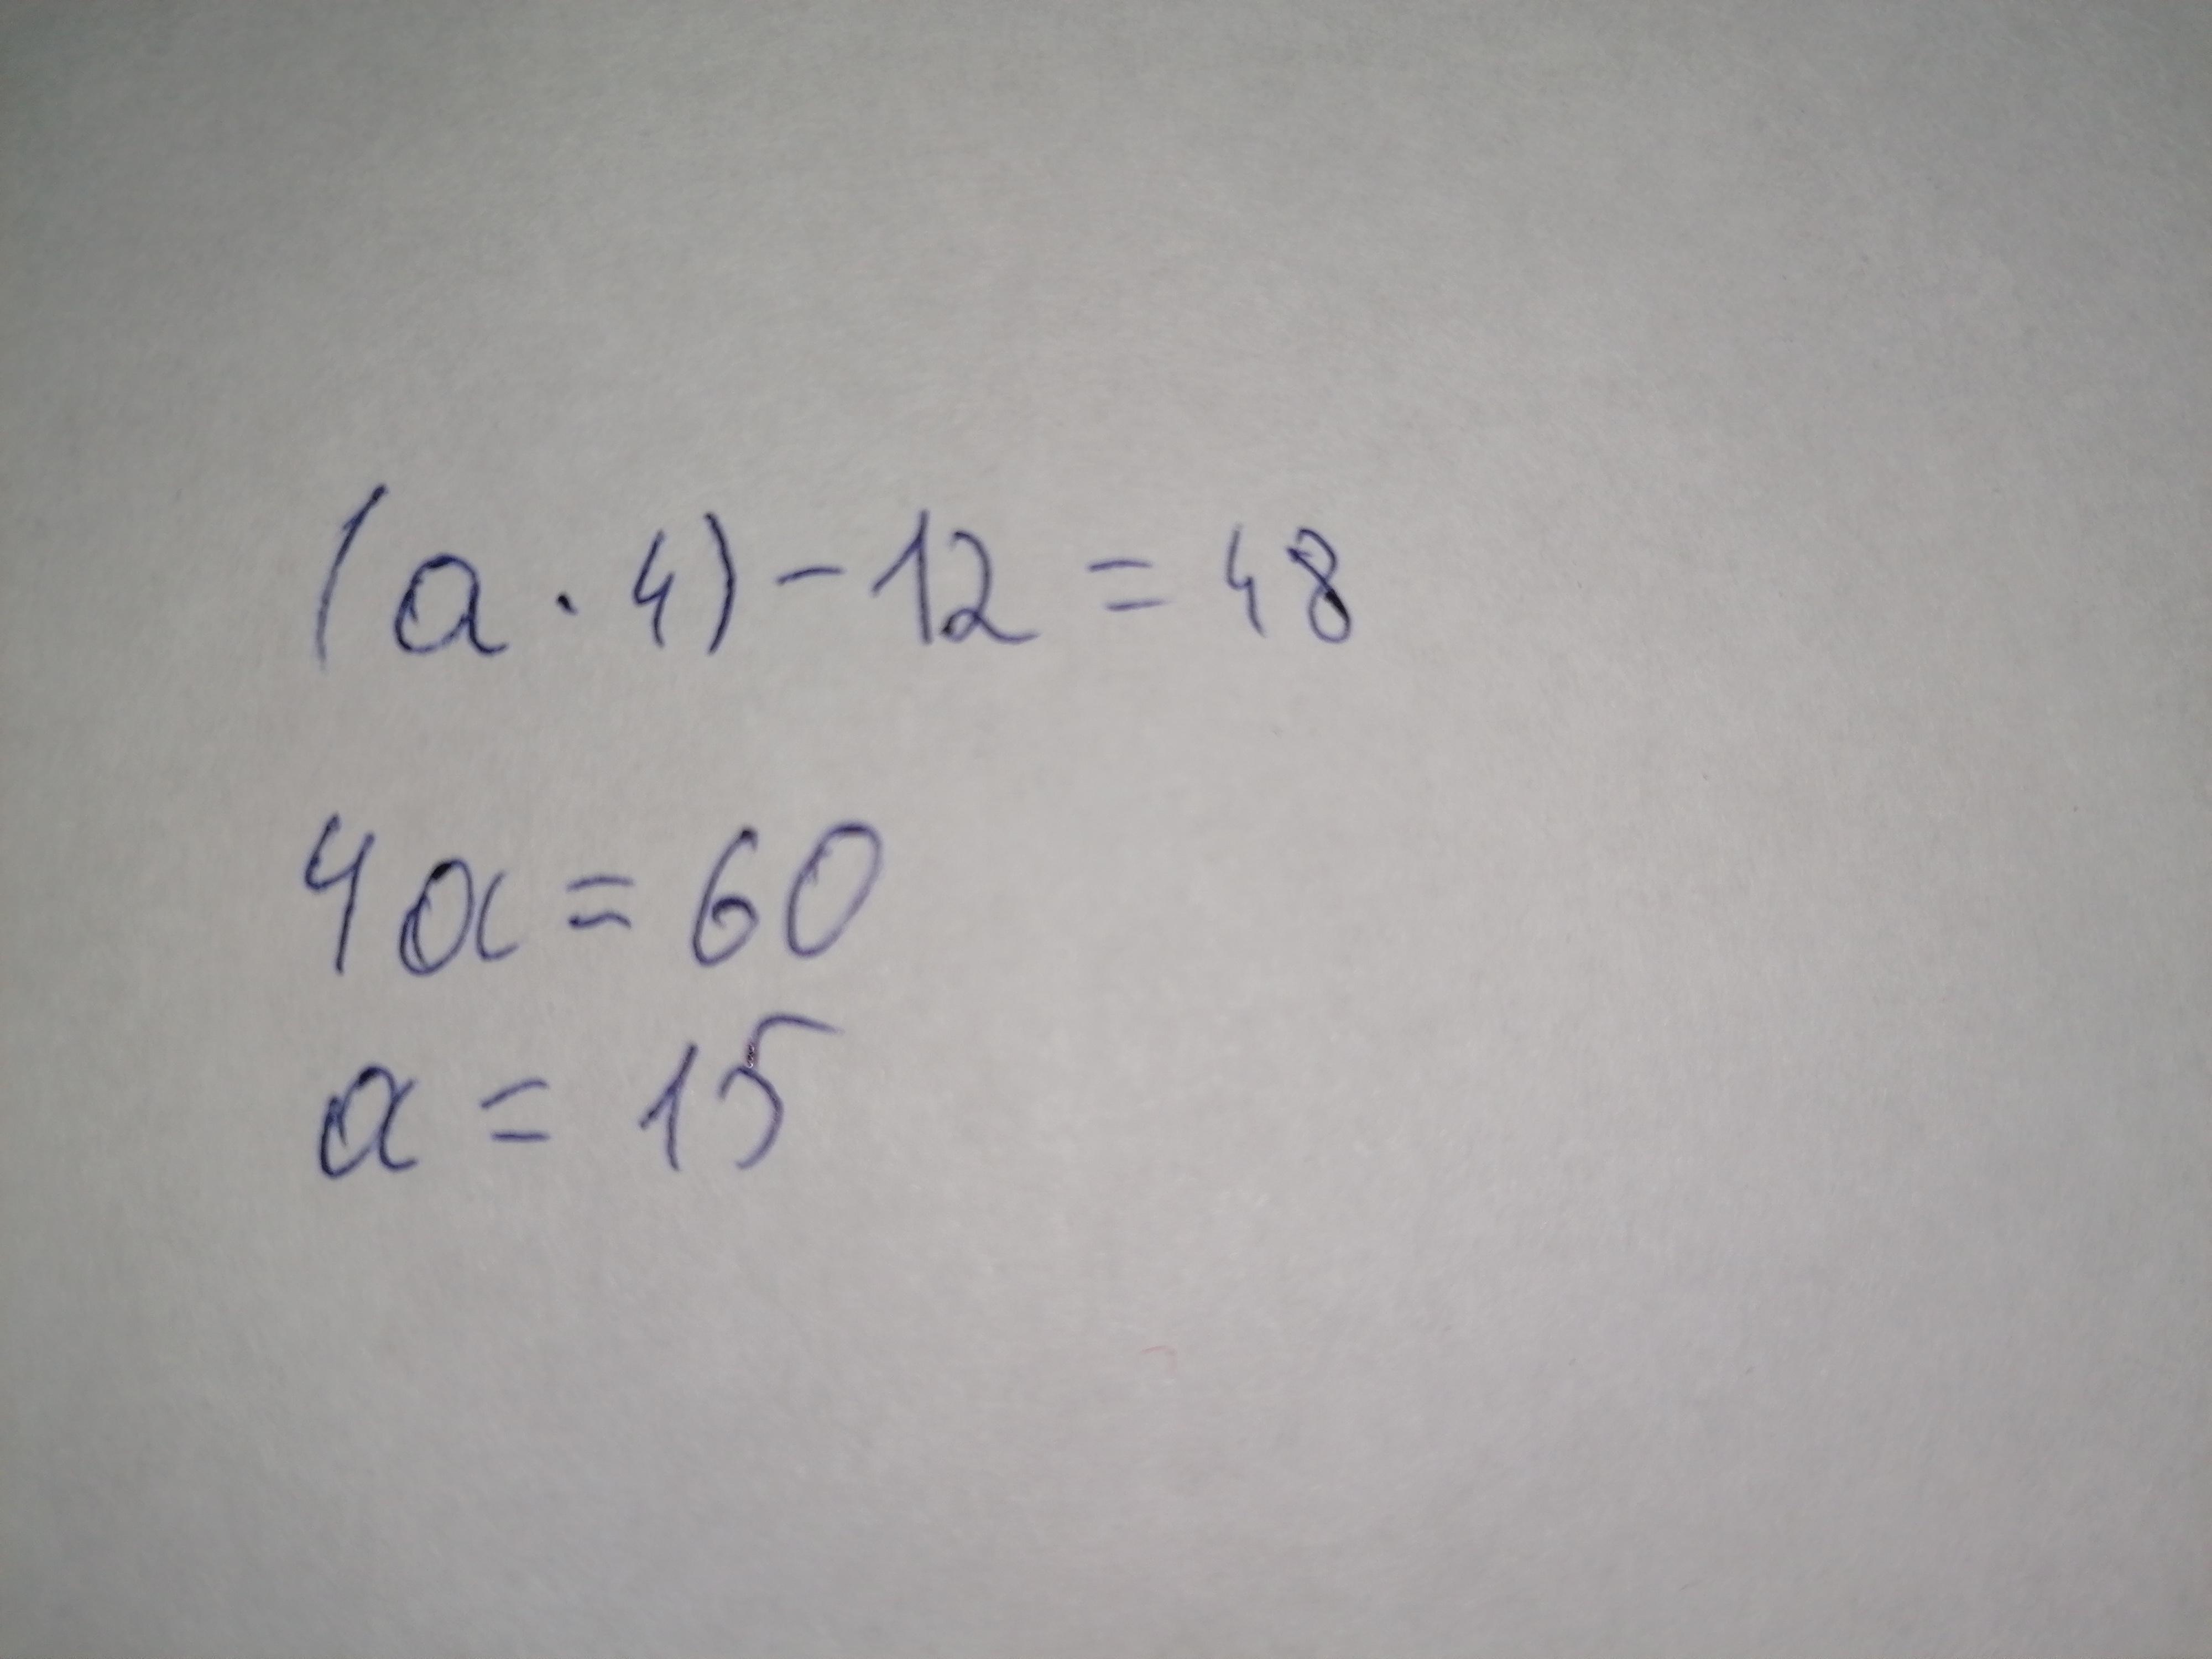 (a · 4) - 12 = 48
4a = 60
a = 15